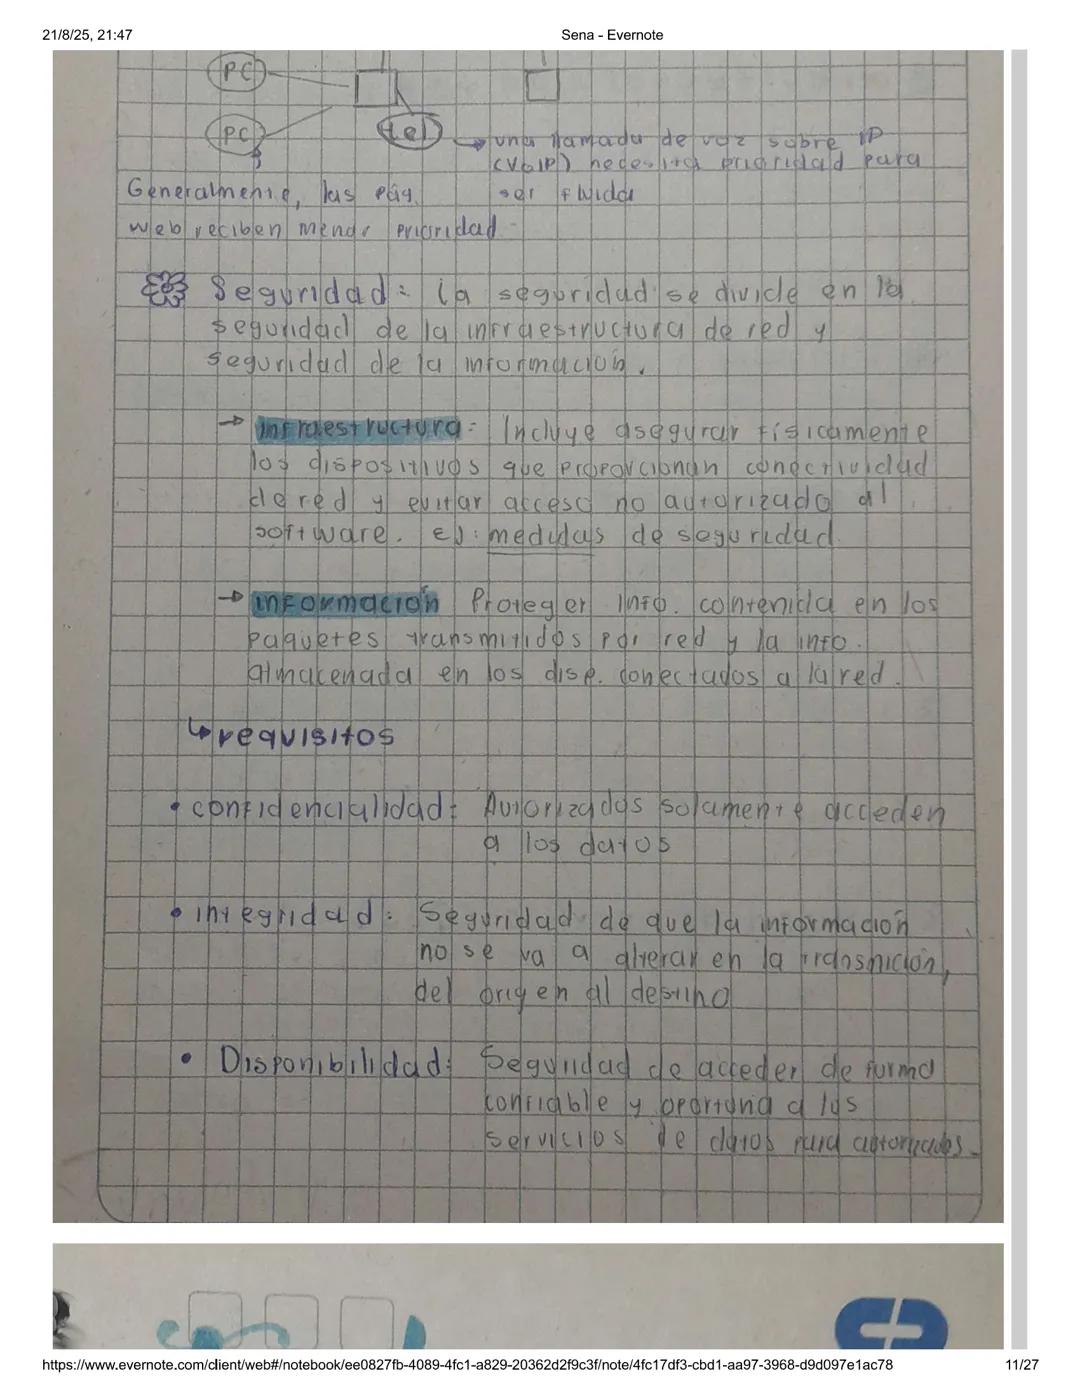 21/8/25, 21:47
Sena - Evernote
PC
PC
tel
una llamada de voz sobre IP
(VoIP) necesita prioridad para
ser fluida
Generalmente, las pág.
web reciben menor prioridad
Seguridad: la seguridad se divide en la
seguridad de la infraestructura de red y
seguridad de la información.
→ infraestructura: Incluye asegurar físicamente
los dispositivos que proporcionan conectividad
de red y evitar acceso no autorizado al
software. Ej: medidas de seguridad.
→ información Proteger info. contenida en los
paquetes transmitidos por red y la info.
almacenada en los disp. conectados a la red.
↳ requisitos
• confidencialidad: Autorizados solamente acceden
a los datos
• integridad: Seguridad de que la información
no se va a alterar en la transmición,
del origen al destino
• Disponibilidad: Seguridad de acceder de forma
confiable y oportuna a los
servicios de datos para autorizados.
https://www.evernote.com/client/web#/notebook/ee0827fb-4089-4fc1-a829-20362d2f9c3f/note/4fc17df3-cbd1-aa97-3968-d9d097e1ac78
11/27